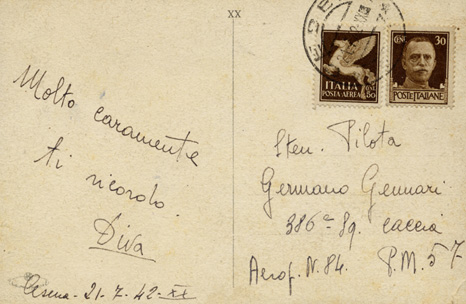 XX
Molto
caramente
ti ricordo.
Diva
Cesena - 21-7-42-XX
ITALIA
POSTA AEREA
CENT 50
CENT 30
POSTE ITALIANE
Sten. Pilota
Germano Gennari
386ª Sq. caccia
Aerop. N. 84. P.M. 57